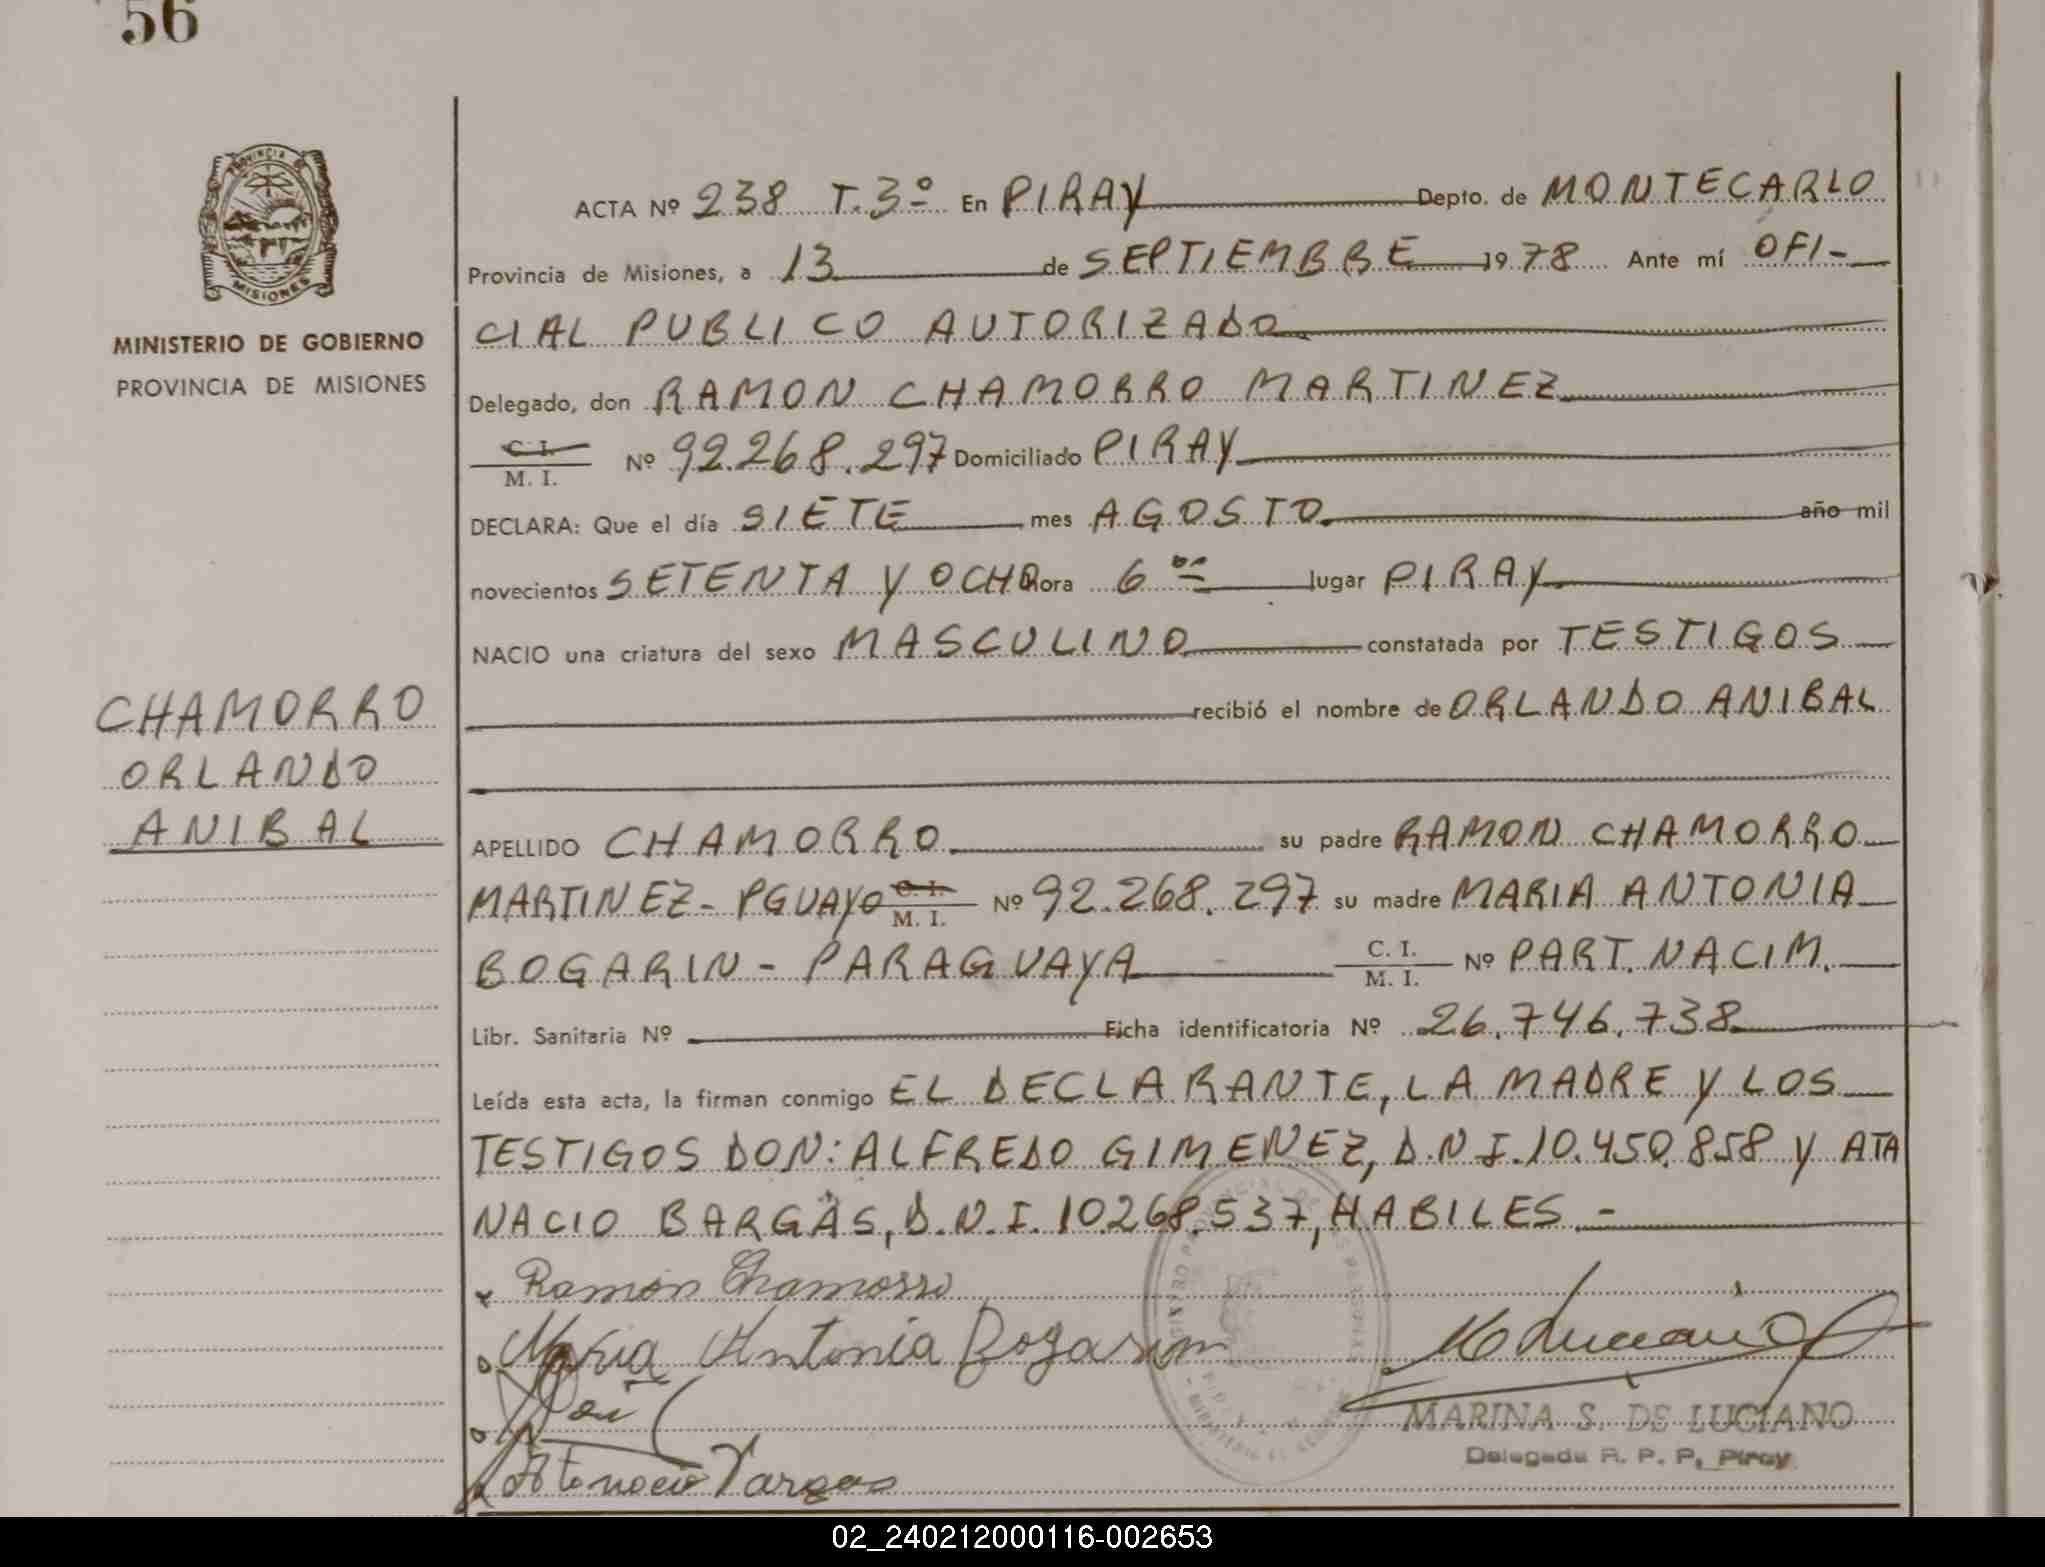 56
PROVINCIA DE
MISIONES
MINISTERIO DE GOBIERNO
PROVINCIA DE MISIONES
CHAMORRO
ORLANDO
ANIBAL
ACTA Nº 238 T.3º En PIRAY Depto. de MONTECARLO
Provincia de Misiones, a 13 de SEPTIEMBRE 1978 Ante mí OFI-
CIAL PUBLICO AUTORIZADO
Delegado, don RAMON CHAMORRO MARTINEZ
C. I.
M. I. Nº 92.268.297 Domiciliado PIRAY
DECLARA: Que el día SIETE mes AGOSTO año mil
novecientos SETENTA Y OCHO hora 6 lugar PIRAY
NACIO una criatura del sexo MASCULINO constatada por TESTIGOS
recibió el nombre de ORLANDO ANIBAL
APELLIDO CHAMORRO su padre RAMON CHAMORRO
MARTINEZ - PGUAYO C. I. M. I. Nº 92.268.297 su madre MARIA ANTONIA
BOGARIN - PARAGUAYA C. I. M. I. Nº PART. NACIM.
Libr. Sanitaria Nº Ficha identificatoria Nº 26.746.738
Leída esta acta, la firman conmigo EL DECLARANTE, LA MADRE Y LOS
TESTIGOS DON: ALFREDO GIMENEZ, D.N.I. 10.450.858 Y ATA
NACIO BARGAS, D.N.I. 10.268.537, HABILES.-
Ramón Chamorro
Maria Antonia Bogarin
Atanacio Vargas
MARINA S. DE LUCIANO
Delegada R. P. P. Piray
02_240212000116-002653